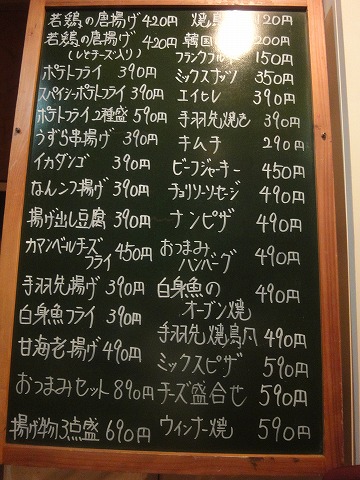 若鶏の唐揚げ 420円
若鶏の唐揚げ 420円
(しそチーズ入り)
ポテトフライ 390円
スパイシーポテトフライ 390円
ポテトフライ2種盛 590円
うずら串揚げ 390円
イカダンゴ 390円
なんこつ揚げ 390円
揚げ出し豆腐 390円
カマンベールチーズ 450円
フライ
手羽先揚げ 390円
白身魚フライ 390円
甘海老揚げ 490円
おつまみセット 890円
揚げ物3点盛 690円
焼鳥 120円
韓国 200円
フランクフルト 150円
ミックスナッツ 350円
エイヒレ 390円
手羽先焼き 390円
キムチ 290円
ビーフジャーキー 450円
チョリソーソーセージ 490円
ナンピザ 490円
おつまみ
ハンバーグ 490円
白身魚の
オーブン焼 490円
手羽先焼鳥風 490円
ミックスピザ 590円
チーズ盛合せ 590円
ウィンナー焼 590円